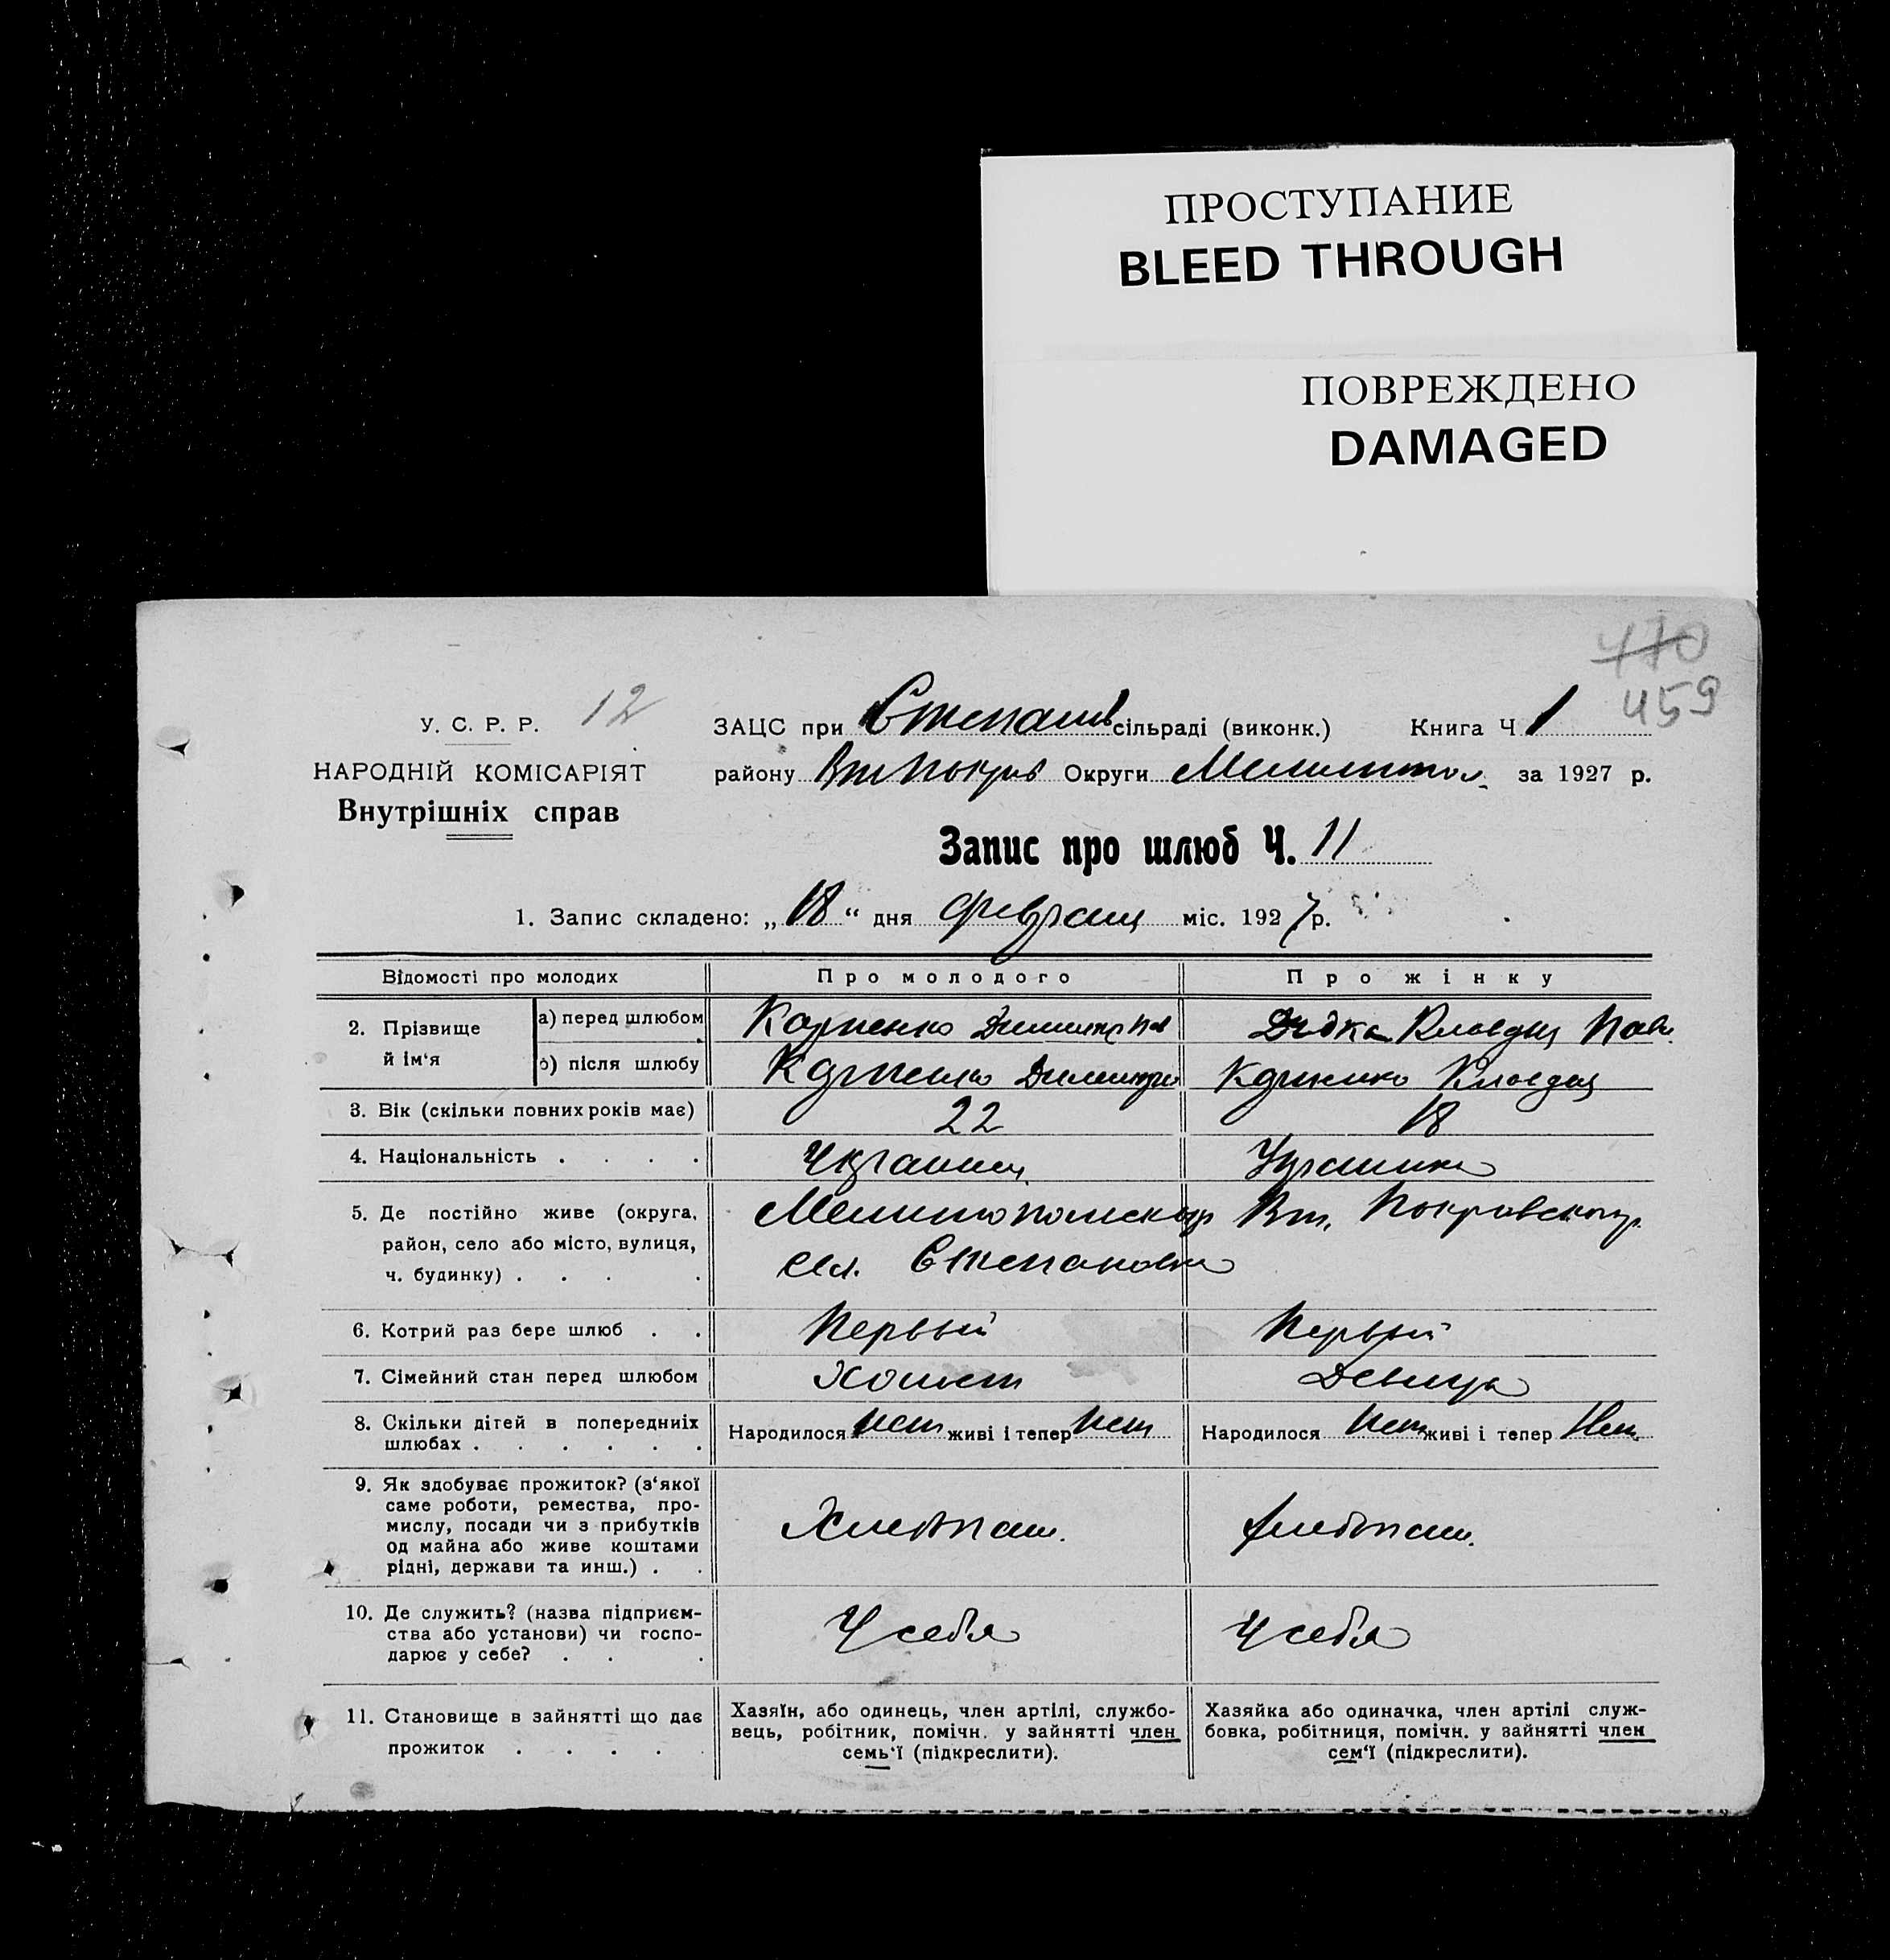 ПРОСТУПАНИЕ
BLEED THROUGH
ПОВРЕЖДЕНО
DAMAGED
470
459
У. С. Р. Р. 12
НАРОДНІЙ КОМІСАРІЯТ
Внутрішніх справ
ЗАЦС при Степанов сільраді (виконк.) Книга Ч 1
району Вт Покров Округи Мелитопол. за 1927 р.
Запис про шлюб Ч. 11
1. Запис складено: „18“ дня февраля міс. 1927 р.
Відомості про молодих Про молодого Про жінку
2. Прізвище й ім‘я
а) перед шлюбом Карпенко Димитр Пав Клавдия Пав.
б) після шлюбу Карпенко Димитри Карпенко Клавдия
3. Вік (скільки повних років має) 22 18
4. Національність . . . . Украинец Украинка
5. Де постійно живе (округа, район, село або місто, вулиця, ч. будинку) . . . . Мелитопольскоя Вт. Покровского р.
сел. Степановка
6. Котрий раз бере шлюб . . Первый Первый
7. Сімейний стан перед шлюбом Холост Девица
8. Скільки дітей в попередниіх шлюбах . . . . . . Народилося нет живі і тепер нет Народилося нет живі і тепер Нет
9. Як здобуває прожиток? (з‘якої саме роботи, ремества, промислу, посади чи з прибутків од майна або живе коштами рідні, держави та инш.) . . Хлебпаш. хлебопаш.
10. Де служить? (назва підприємства або установи) чи господарює у себе? . . . У себя У себя
11. Становище в зайнятті що дає прожиток . . . . .
Хазяїн, або одинець, член артілі, службо-
вець, робітник, помічн. у зайнятті член
семь‘ї (підкреслити).
Хазяйка або одиначка, член артілі служ-
бовка, робітниця, помічн. у зайнятті член
сем‘ї (підкреслити).